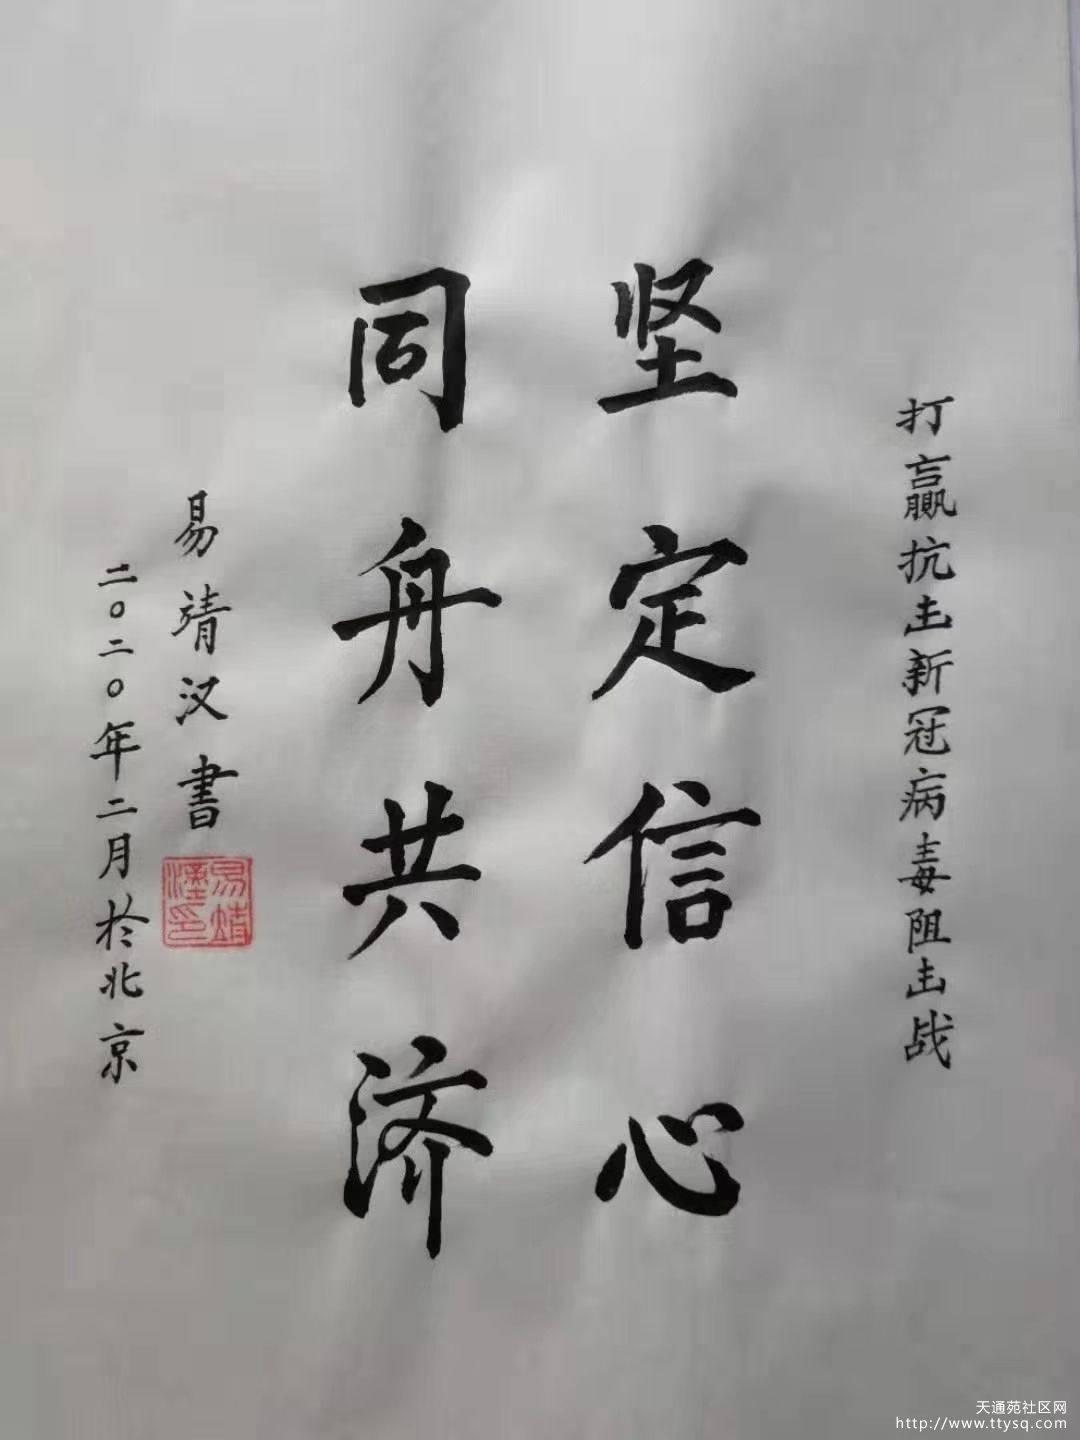 打赢抗击新冠病毒阻击战
坚定信心
同舟共济
易靖汉書
二〇二〇年二月於北京
易靖漢印
天通苑社区网
http://www.ttysq.com